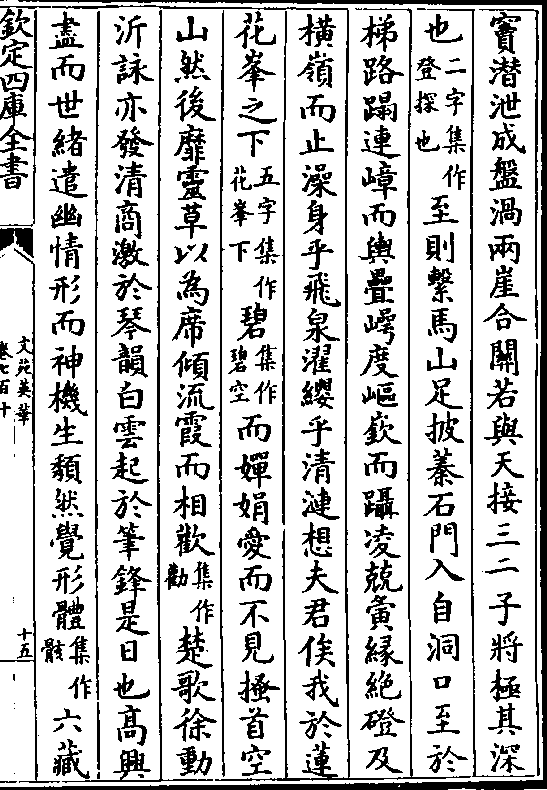 竇潜泄成盤渦兩崖合闢若與天接三二子將極其深
也二字集作登探也至則繫馬山足披蓁石門入自洞口至於
梯路蹋連嶂而輿疊崿度嶇嶔而躡凌兢夤縁絶磴及
横嶺而止澡身乎飛泉濯纓乎清漣想夫君俟我於蓮
花峯之下五字集作花峯下碧集作碧空而嬋娟愛而不見搔首空
山然後靡靈草以為席傾流霞而相歡集作勸楚歌徐動
沂詠亦發清商激於琴韻白雲起於筆鋒是日也高興
盡而世緒遣幽情形而神機生頽然覺形體集作骸六藏
欽定四庫全書
文苑英華
卷七百十
十五